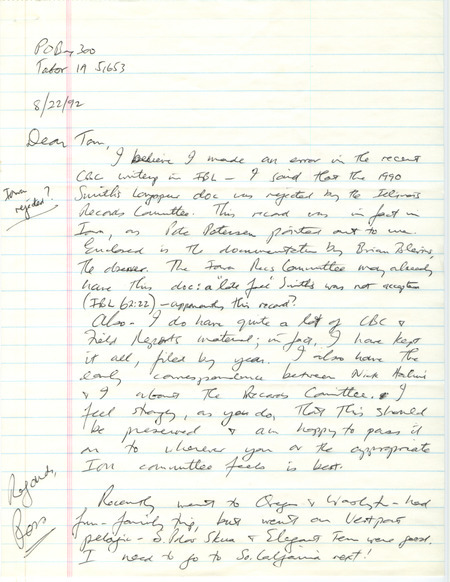 PO Box 300
Tabor IA 51653
8/22/92
Dear Tom,
I believe I made an error in the recent
CBC writing in IBL – I said that the 1990
Smith's Longspur doc was rejected by the Illinois
Records Committee. This record was in fact in
Iowa, as Pete Petersen pointed out to me.
Enclosed is the documentation by Brian Blevins,
the observer. The Iowa Recs Committee may already
have this doc: a "late fall" Smith's was not accepted
(IBL 62:22) – apparently this record?
Iowa
rejected?
Also – I do have quite a lot of CBC &
Field Reports material; in fact, I have kept
it all, filed by year. I also have the
early correspondence between Nick Halmi
& I about the Records Committee. I
feel strongly, as you do, that this should
be preserved & am happy to pass it
on to wherever you or the appropriate
IOU committee feels is best.
Recently went to Oregon & Washgtn – had
fun – family trip, but went on Westport
pelagic – S. Polar Skua & Elegant Tern were good.
I need to go to So. California next!
Regards,
Ross